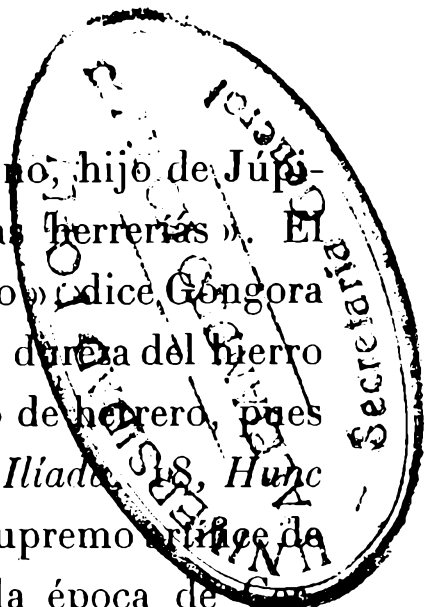 no, hijo de Júpi-
as herrerías ». El
o »; dice Góngora
dureza del hierro
de herrero, pues
Ilíada, 18, Hunc
upremo artífice de
la época de
Secretaría General